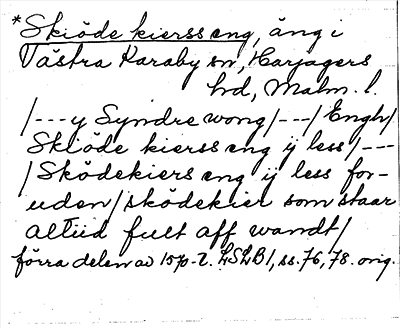 *Skiöde kierss eng, äng i
Västra Karaby sn, Harjagers
hd, Malm. l.
/---y Syndre wong/---/Engh/
Skiöde kierss eng ij less/---
/Sködekiers eng ij less for-
uden/sködekier som staar
altiid fult aff wandt/
förra delen av 1570-t. LSLB1, ss. 76, 78. orig.